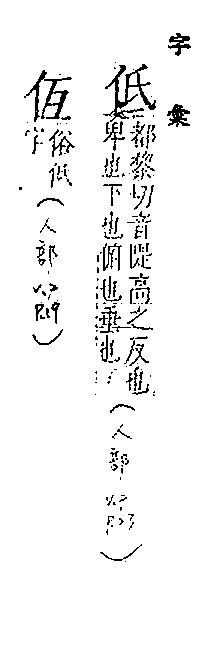 字彙
低
都黎切音隄高之反也
卑也下也俯也垂也
(人部
仾
俗低
字
(人部